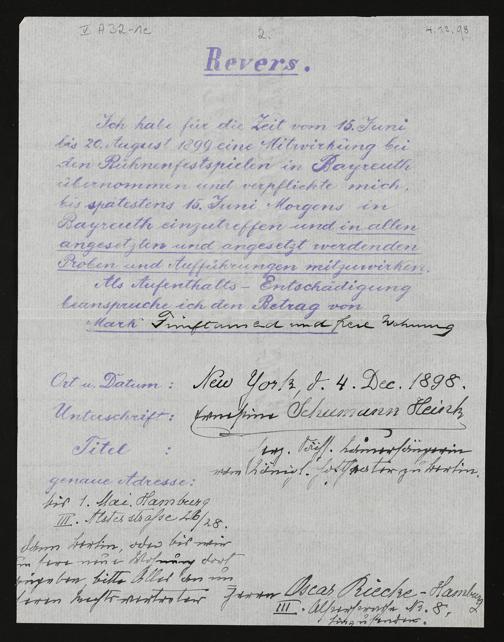 V A 32-1c
2.
4.12.98
Revers.
Ich habe für die Zeit vom 15. Juni
bis 20. August 1899 eine Mitwirkung bei
den Bühnenfestspielen in Bayreuth
übernommen und verpflichte mich,
bis spätestens 15. Juni Morgens in
Bayreuth einzutreffen und in allen
angesetzten und angesetzt werdenden
Proben und Aufführungen mitzuwirken.
Als Aufenthalts-Entschädigung
beanspruche ich den Betrag von
Mark Fünftausend und freie Wohnung
Ort u. Datum: New York, d. 4. Dec. 1898.
Unterschrift: Ernestine Schumann Heink
Titel : Kammersängerin
vom Königl. Hoftheater zu Berlin.
genaue Adresse:
bis 1. Mai. Hamburg
III. Alsterstraße 26/28.
dann Berlin, oder bis wir
neue Wohnung dort
angeben, bitte Alles an
Rechtsvertreter Herrn Oscar Riecke-Hamburg
III. No. 8,